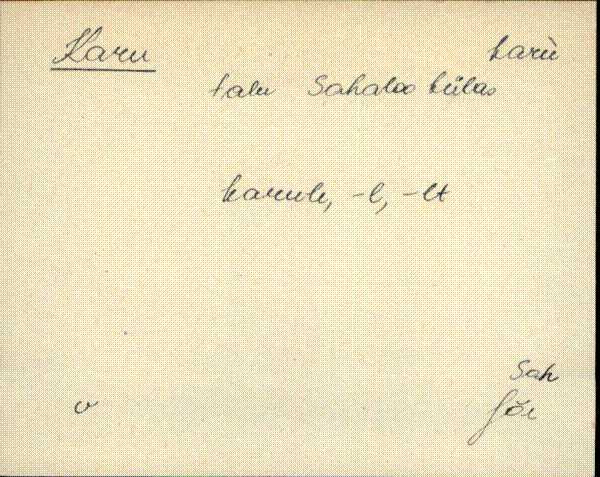 Karu karù
talu Sahaloo külas
karule, -l, -lt
Sah
v Jõe